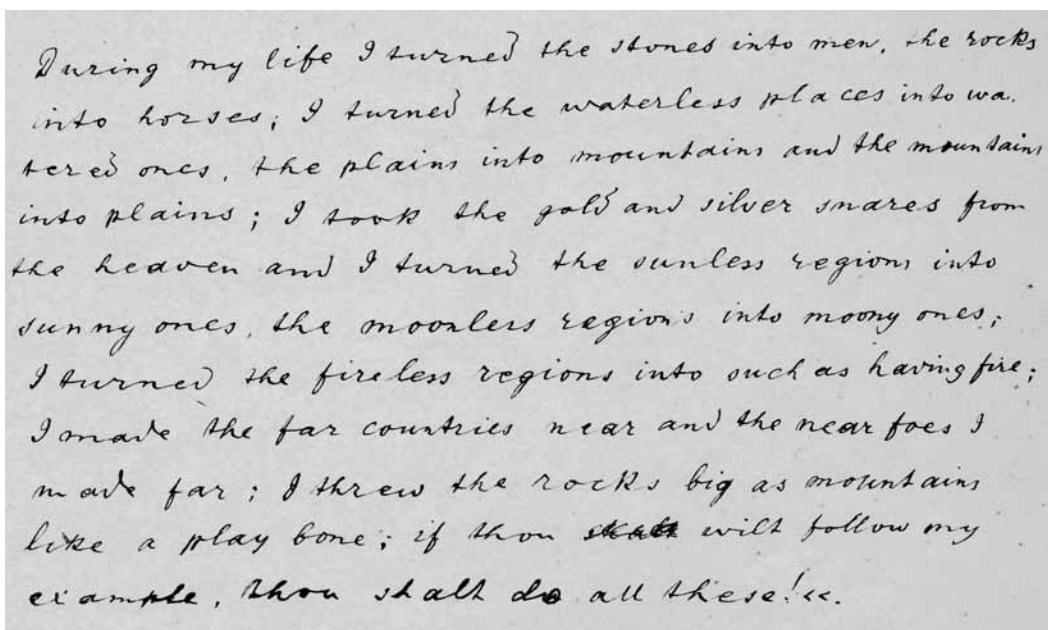 During my life I turned the stones into men, the rocks
into horses; I turned the waterless places into wa.
tered ones, the plains into mountains and the mountains
into plains; I took the gold and silver snares from
the heaven and I turned the sunless regions into
sunny ones, the moonless regions into moony ones;
I turned the fireless regions into such as having fire;
I made the far countries near and the near foes I
made far; I threw the rocks big as mountains
like a play bone; if thou wilt follow my
example, thou shalt do all these!«.